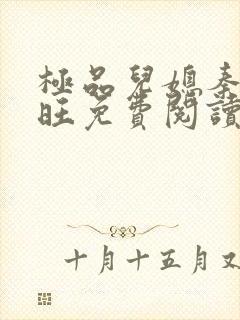 極品兒媳秦
旺免費閱讀
十月十五月又